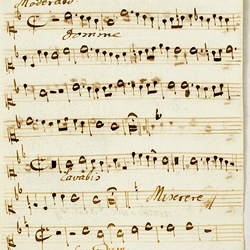 Moderato
Domine
Lavabis
Miserere